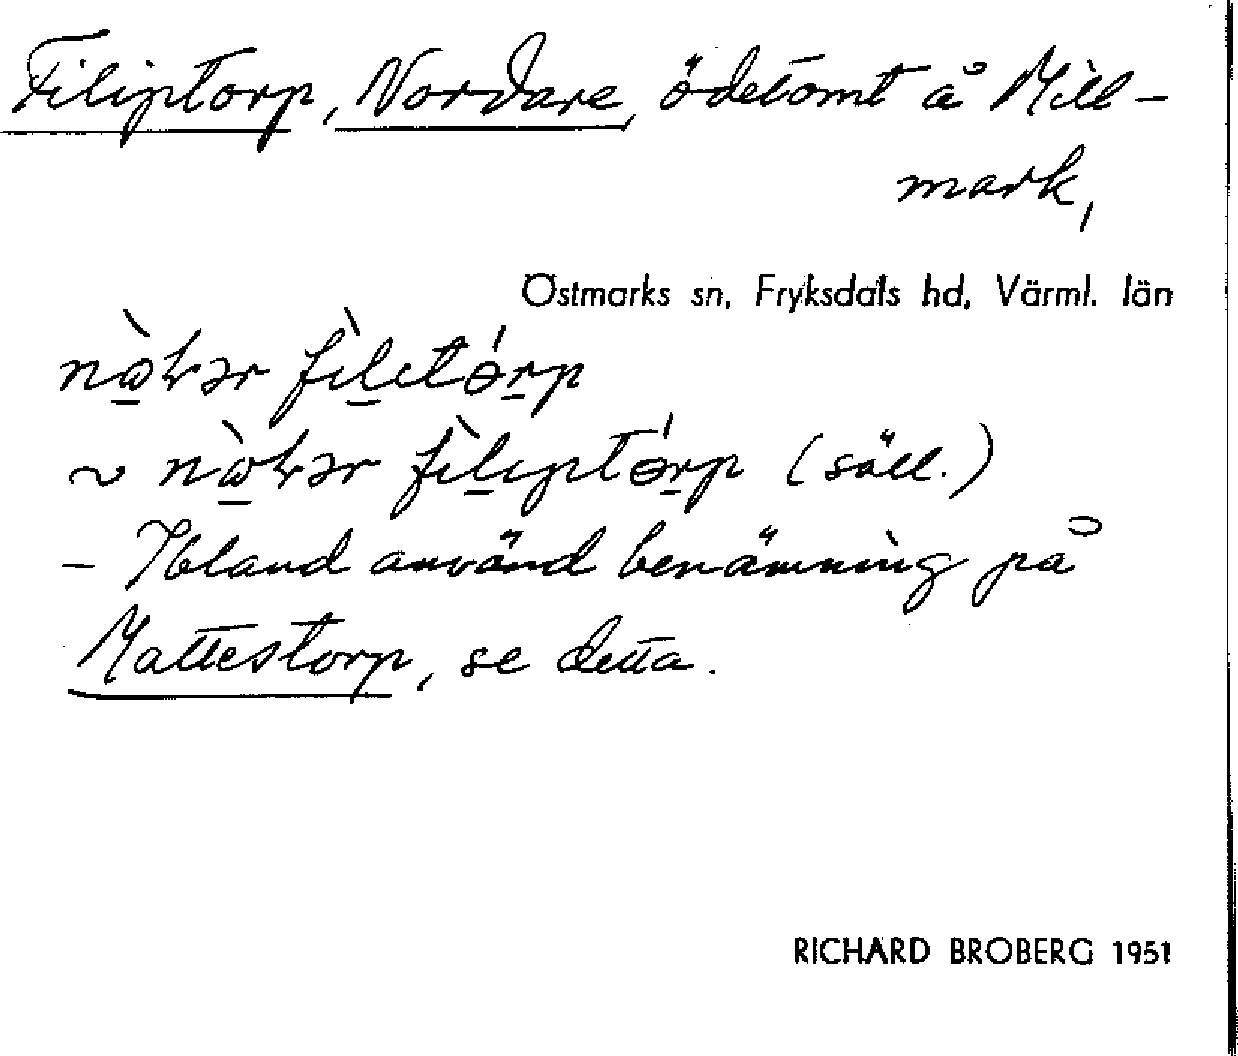 Filiptorp, Nordare, ödetomt å Mill-
mark,
Östmarks sn, Fryksdals hd, Värml. län
(säll.)
– Ibland använd benämning på
Mattestorp, se detta.
RICHARD BROBERG 1951